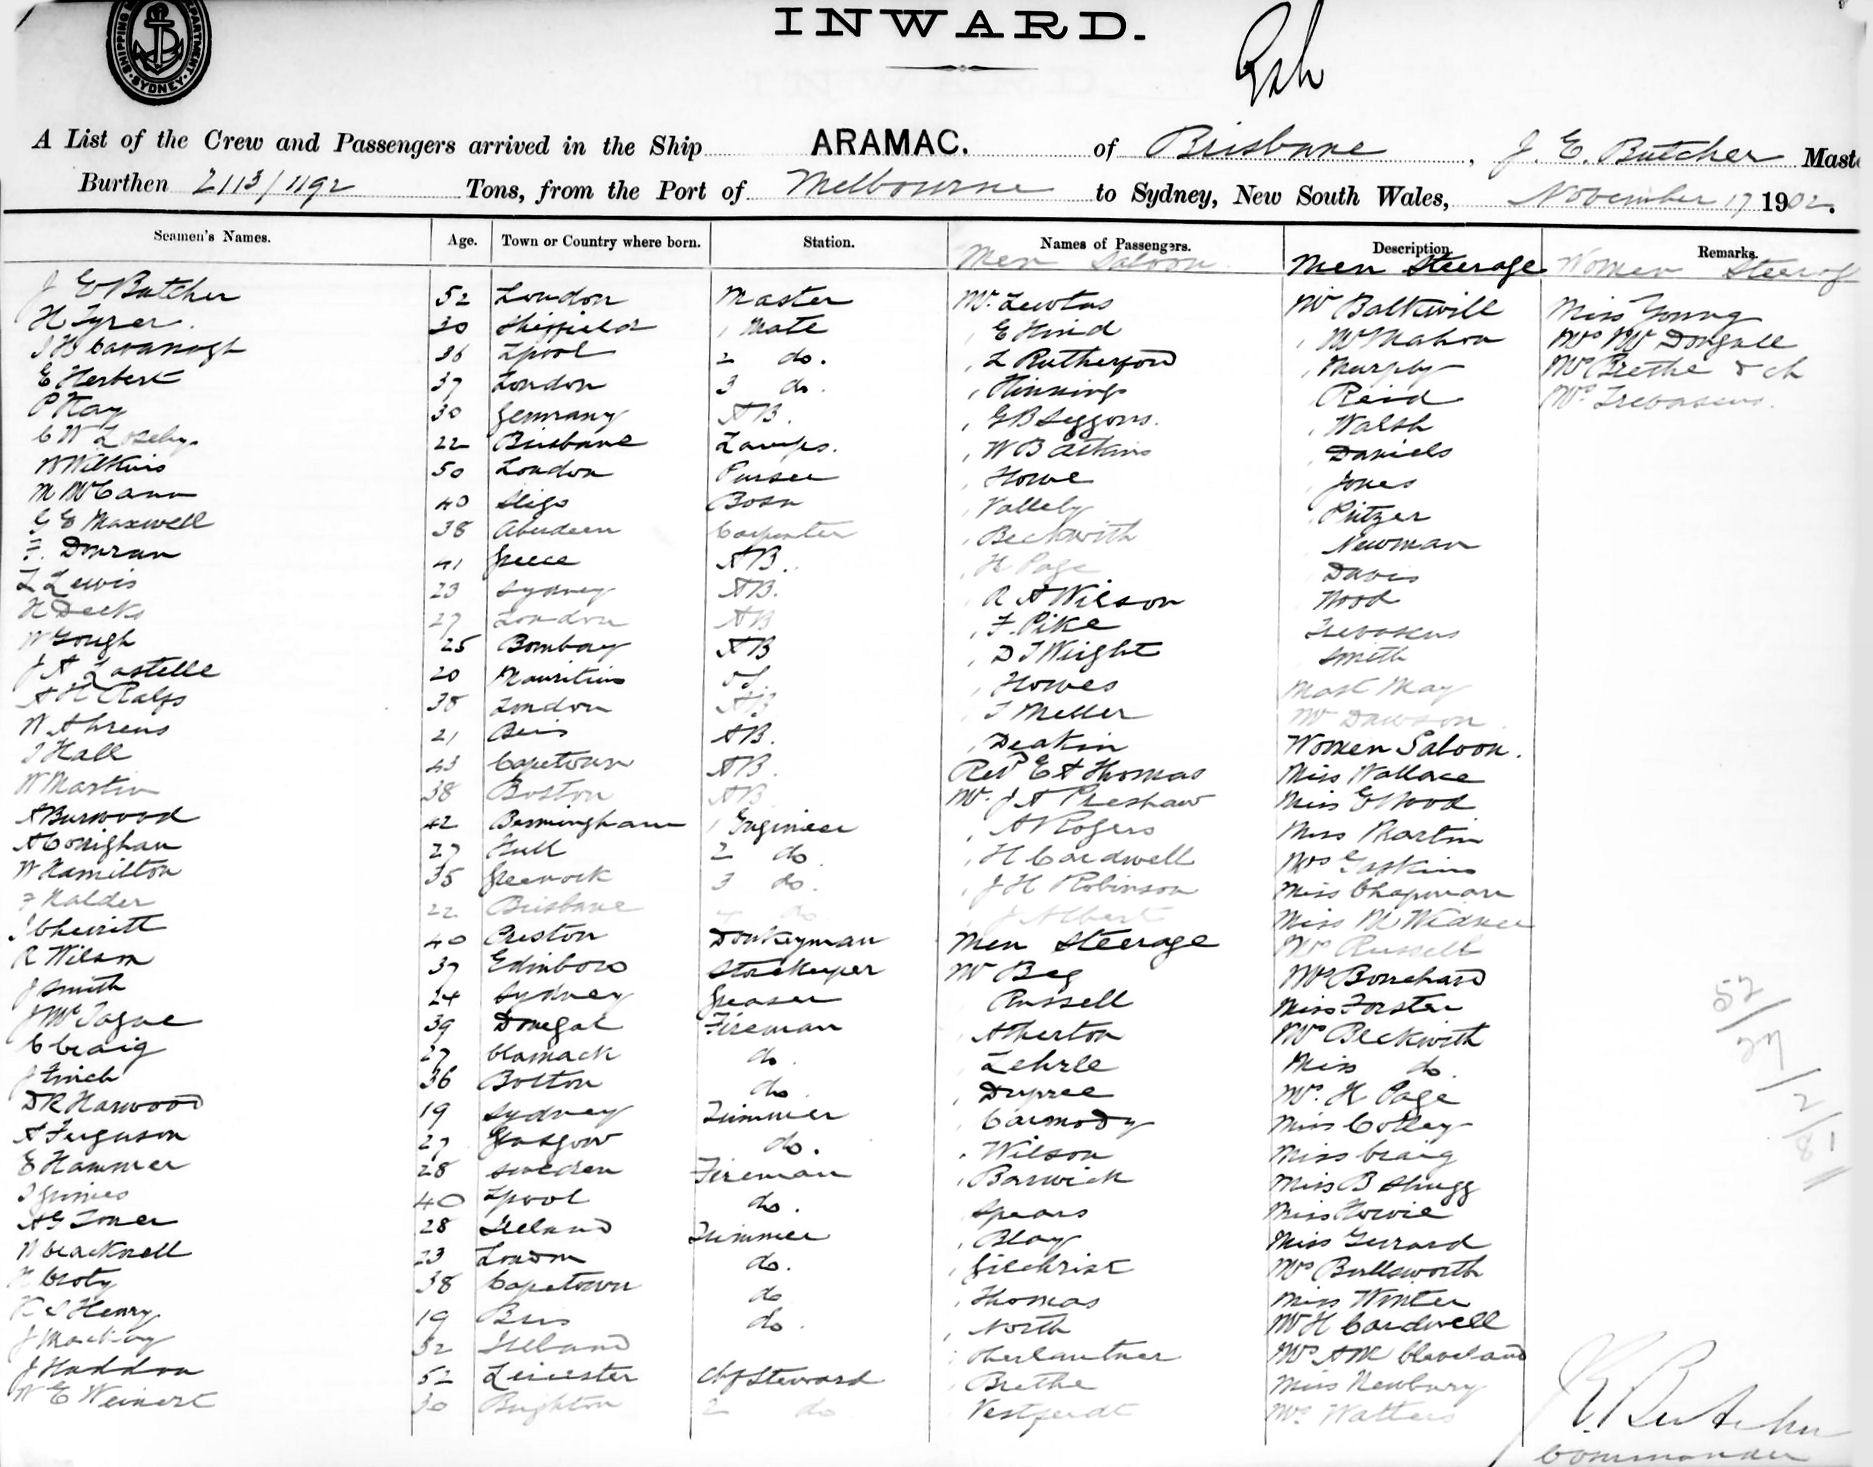 SHIPPING DEPARTMENT SYDNEY
INWARD.
A List of the Crew and Passengers arrived in the Ship ARAMAC. of Brisbane, J. E. Butcher Maste
Burthen 2113/1192 Tons, from the Port of Melbourne to Sydney, New South Wales, November 17 1902.
Seamen's Names. Age. Town or Country where born. Station. Names of Passengers. Description. Remarks.
Men Saloon Men Steerage Women Steerag
J E Butcher 52 London Master Mr. Lewtas Mr Balkwill Miss Young
H Tyrer. 30 Sheffield 1 Mate E Hind McMahon Mrs McDougall
J H Cavanagh 36 Lpool 2 do. L Rutherford Murphy Mrs Brethe & ch
E Herbert 37 London 3 do. Hinnings Reid Mrs Trevascus.
P Kay 30 Germany AB. G B Seggons. Walsh
C W Loseby. 22 Brisbane Lamps. W B Atkins Daniels
W Wilkins 50 London Purser Howe Jones
M McCann 40 Sligo Bosn Vallely Pitzer
G E Maxwell 38 Aberdeen Carpenter Beckwith Newman
F. Douran 41 Greece AB. H Page Davis
L Lewis 23 Sydney AB. R A Wilson Wood
H Deeks 27 London AB F. Pike Trevascus
W Gough 25 Bombay AB D J Wright Smith
J A Lastelle 20 Mauritius OS Howes Mast May
A H Ralfs 38 London AB J Meller Mr Dawson
W Ahrens 21 Bris AB. Deakin Women Saloon.
J Hall 43 Capetown AB. Revd E A Thomas Miss Wallace
W Martin 38 Boston AB Mr. J A Preshaw Miss E Wood
A Burwood 42 Birmingham 1 Engineer A Rogers Miss Martin
A Conighan 27 Hull 2 do. H Cardwell Mrs Gaskins
W Hamilton 35 Greenock 3 do. J H Robinson Miss Chapman
F Nalder 22 Brisbane 4 do J Albert Miss M Widner
J Chevitt 40 Preston Donkeyman Men Steerage Mrs Russell
R Wilson 37 Edinboro Storekeeper Mr Beg Mrs Bouchard
J Smith 24 Sydney Greaser Russell Miss Forster
J McTague 39 Donegal Fireman Atherton Mrs Beckwith
C Craig 27 Clamack do. Lehrle Miss do.
J Finch 36 Bolton do Dupree Mrs. H Page
D R Harwood 19 Sydney Trimmer Carmody Miss Colley
A Ferguson 27 Glasgow do. Wilson Miss Craig
E Hammer 28 Sweden Fireman Barwick Miss B Shugg
J Grimes 40 Lpool do. Spears Miss Howie
A G Toner 28 Ireland Trimmer Blay Miss Gerrard
W Cracknell 23 London do. Gilchrist Mrs Bullsworth
Croty 38 Capetown do Thomas Miss Winter
K S Henry 19 Bris do. North Mrs H Cardwell
J Mackay 32 Ireland Oberlautner Mrs A M Cleveland
J Haddon 52 Leicester Chf Steward Brethe Miss Newbury
W E Weinert 30 Brighton 2 do Mrs Watters
52/27/2/81
J E Butcher
Commander